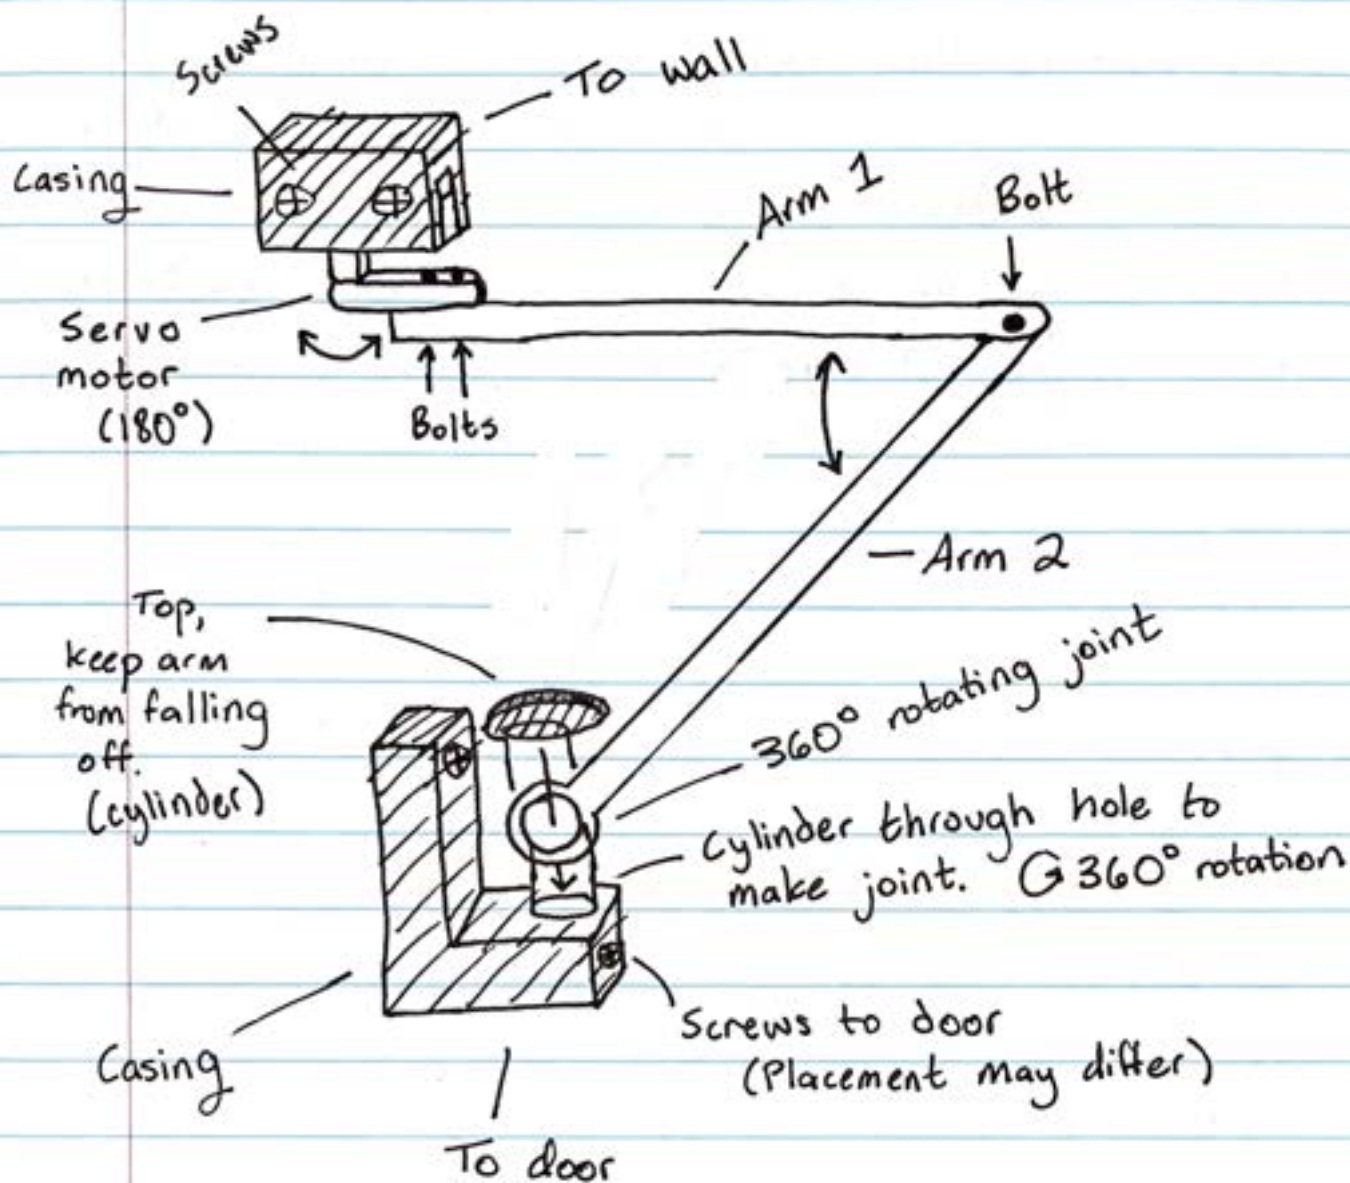 Screws
To wall
Casing
Arm 1
Bolt
Servo
motor
(180°)
Bolts
Arm 2
Top,
keep arm
from falling
off.
(cylinder)
360° rotating joint
Cylinder through hole to
make joint. 360° rotation
Screws to door
(Placement may differ)
Casing
To door